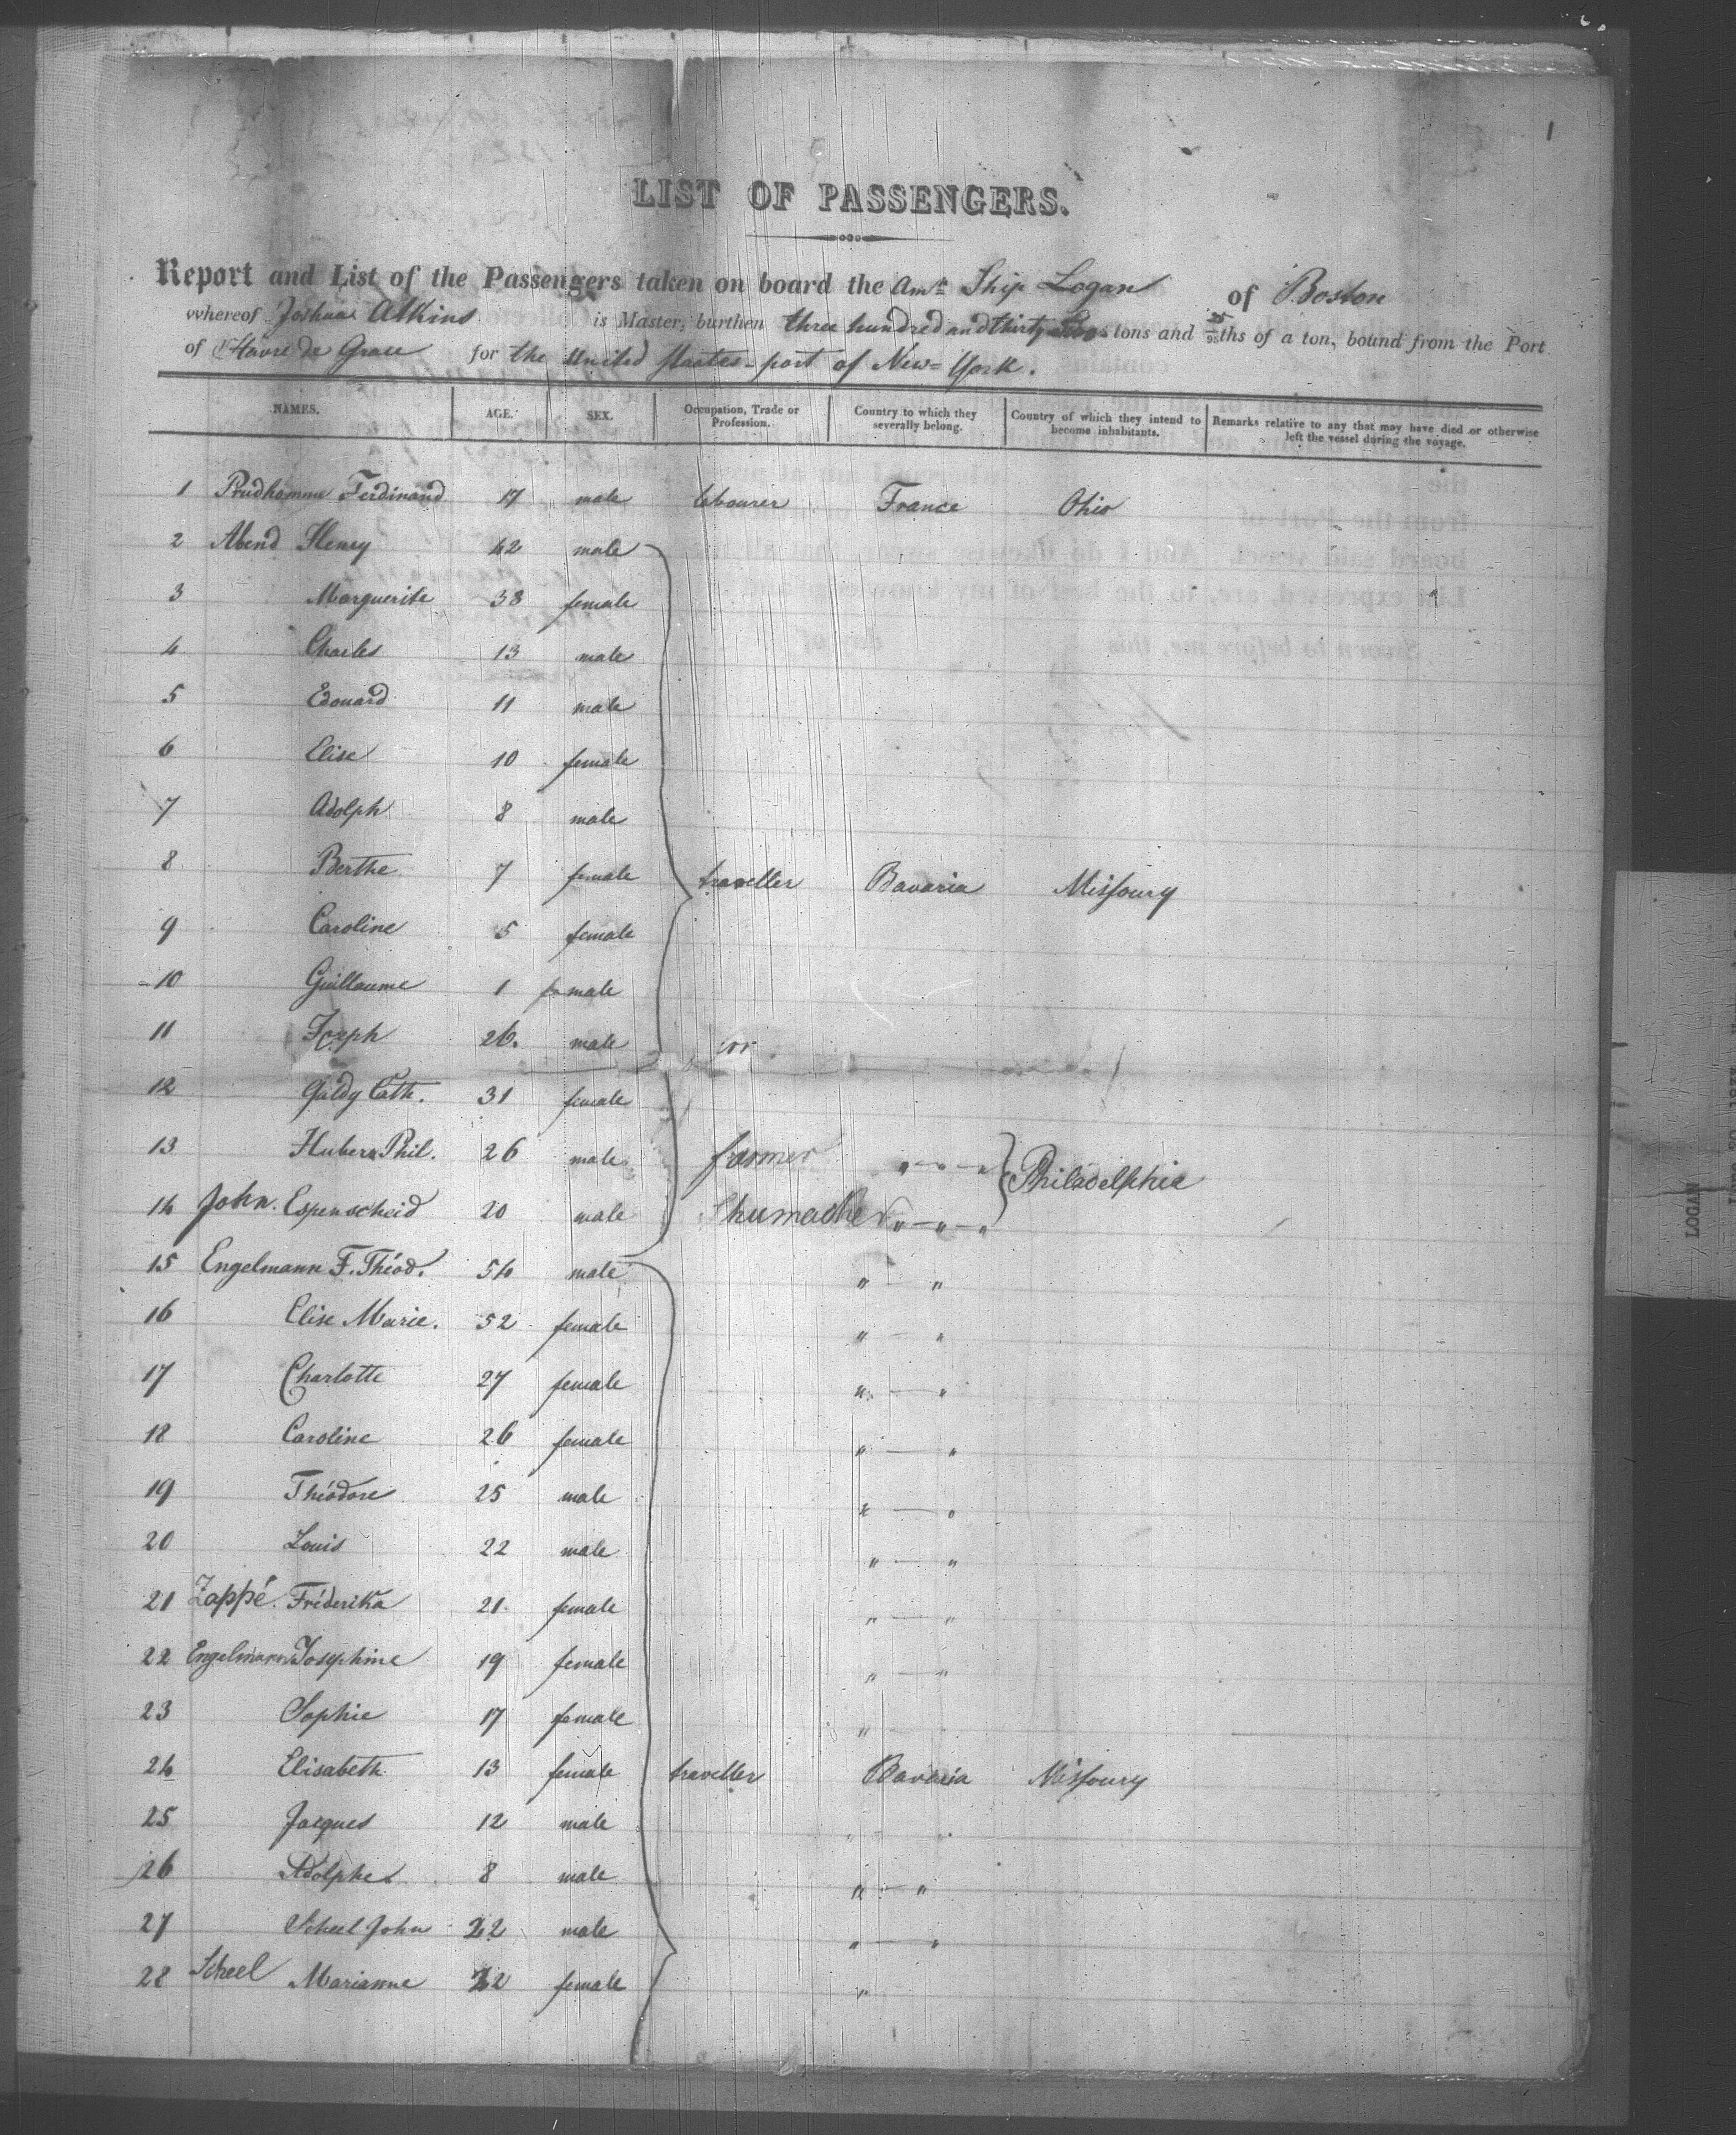 1
LIST OF PASSENGERS.
Report and List of the Passengers taken on board the Amn Ship Logan of Boston
whereof Joshua Atkins is Master, burthen three hundred and thirty tons and 25/95ths of a ton, bound from the Port
of Havre de Grace for the United States - port of New-York.
NAMES. AGE. SEX. Occupation, Trade or Profession. Country to which they severally belong. Country of which they intend to become inhabitants. Remarks relative to any that may have died or otherwise left the vessel during the voyage.
1 Prudhomme Ferdinand 17 male labourer France Ohio
2 Abend Henry 42 male
3 Marguerite 38 female
4 Charles 13 male
5 Edouard 11 male
6 Elise 10 female
7 Adolph 8 male
8 Berthe 7 female traveller Bavaria Missoury
9 Caroline 5 female
10 Guillaume 1 male
11 Joseph 26. male
12 Cath. 31 female
13 Huber Phil. 26 male farmer " - " - " Philadelphie
14 John. Espenscheid 20 male Shumacher " - " - "
15 Engelmann F. Théod. 54 male " "
16 Elise Marie. 52 female " - "
17 Charlotte 27 female " - "
18 Caroline 26 female " - "
19 Théodore 25 male " - "
20 Louis 22 male " - "
21 Zappé. Fréderika 21 female " - "
22 Engelmann Josephine 19 female " - "
23 Sophie 17 female "
24 Elisabeth 13 female traveller Bavaria Missoury
25 Jacques 12 male
26 Adolphe 8 male " - "
27 Scheel John 22 male " - "
28 Scheel Marianne 22 female "